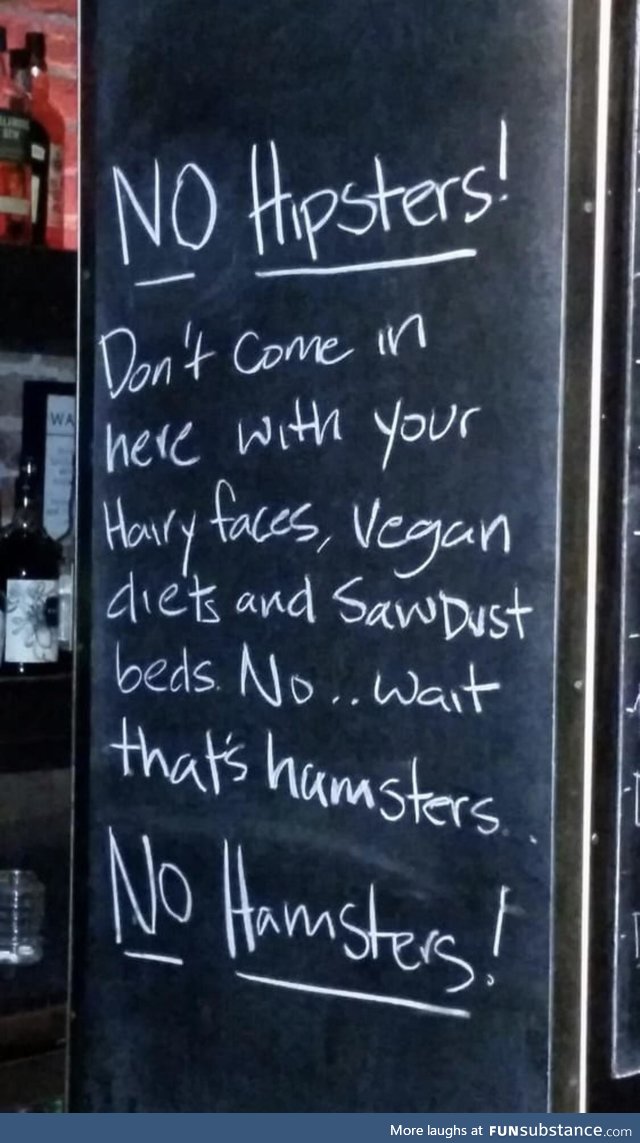 NO Hipsters!
Don't come in
here with your
Hairy faces, Vegan
diets and SawDust
beds. No.. wait
that's hamsters..
No Hamsters!
WA
More laughs at FUNsubstance.com